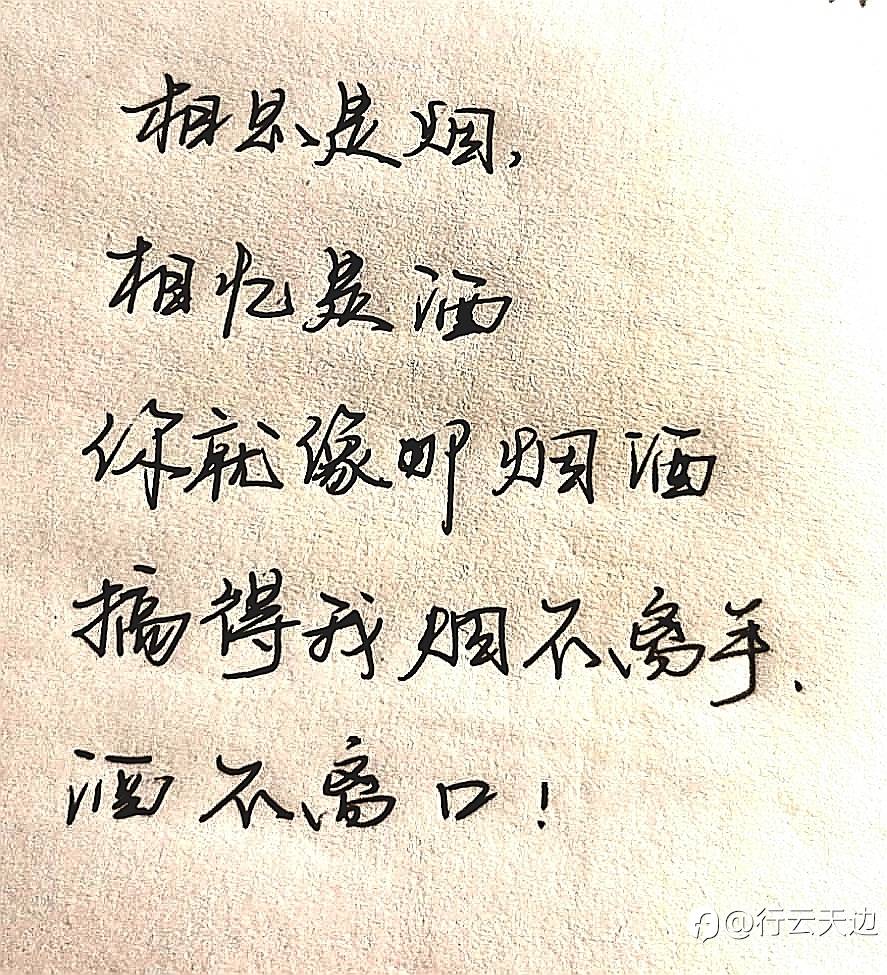 相思是烟,
相忆是酒
你就像那烟酒
搞得我烟不离手.
酒不离口!
@行云天边